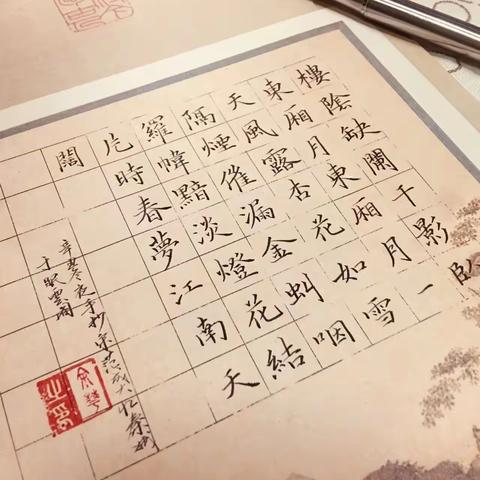 樓陰缺闌干影臥
東廂月東廂月一
天風露杏花如雪
隔煙催漏金虬咽
羅幃黯淡燈花結
片時春夢江南天
闊
辛丑冬夜手抄宋范成大忆秦娥
于眠雲閣